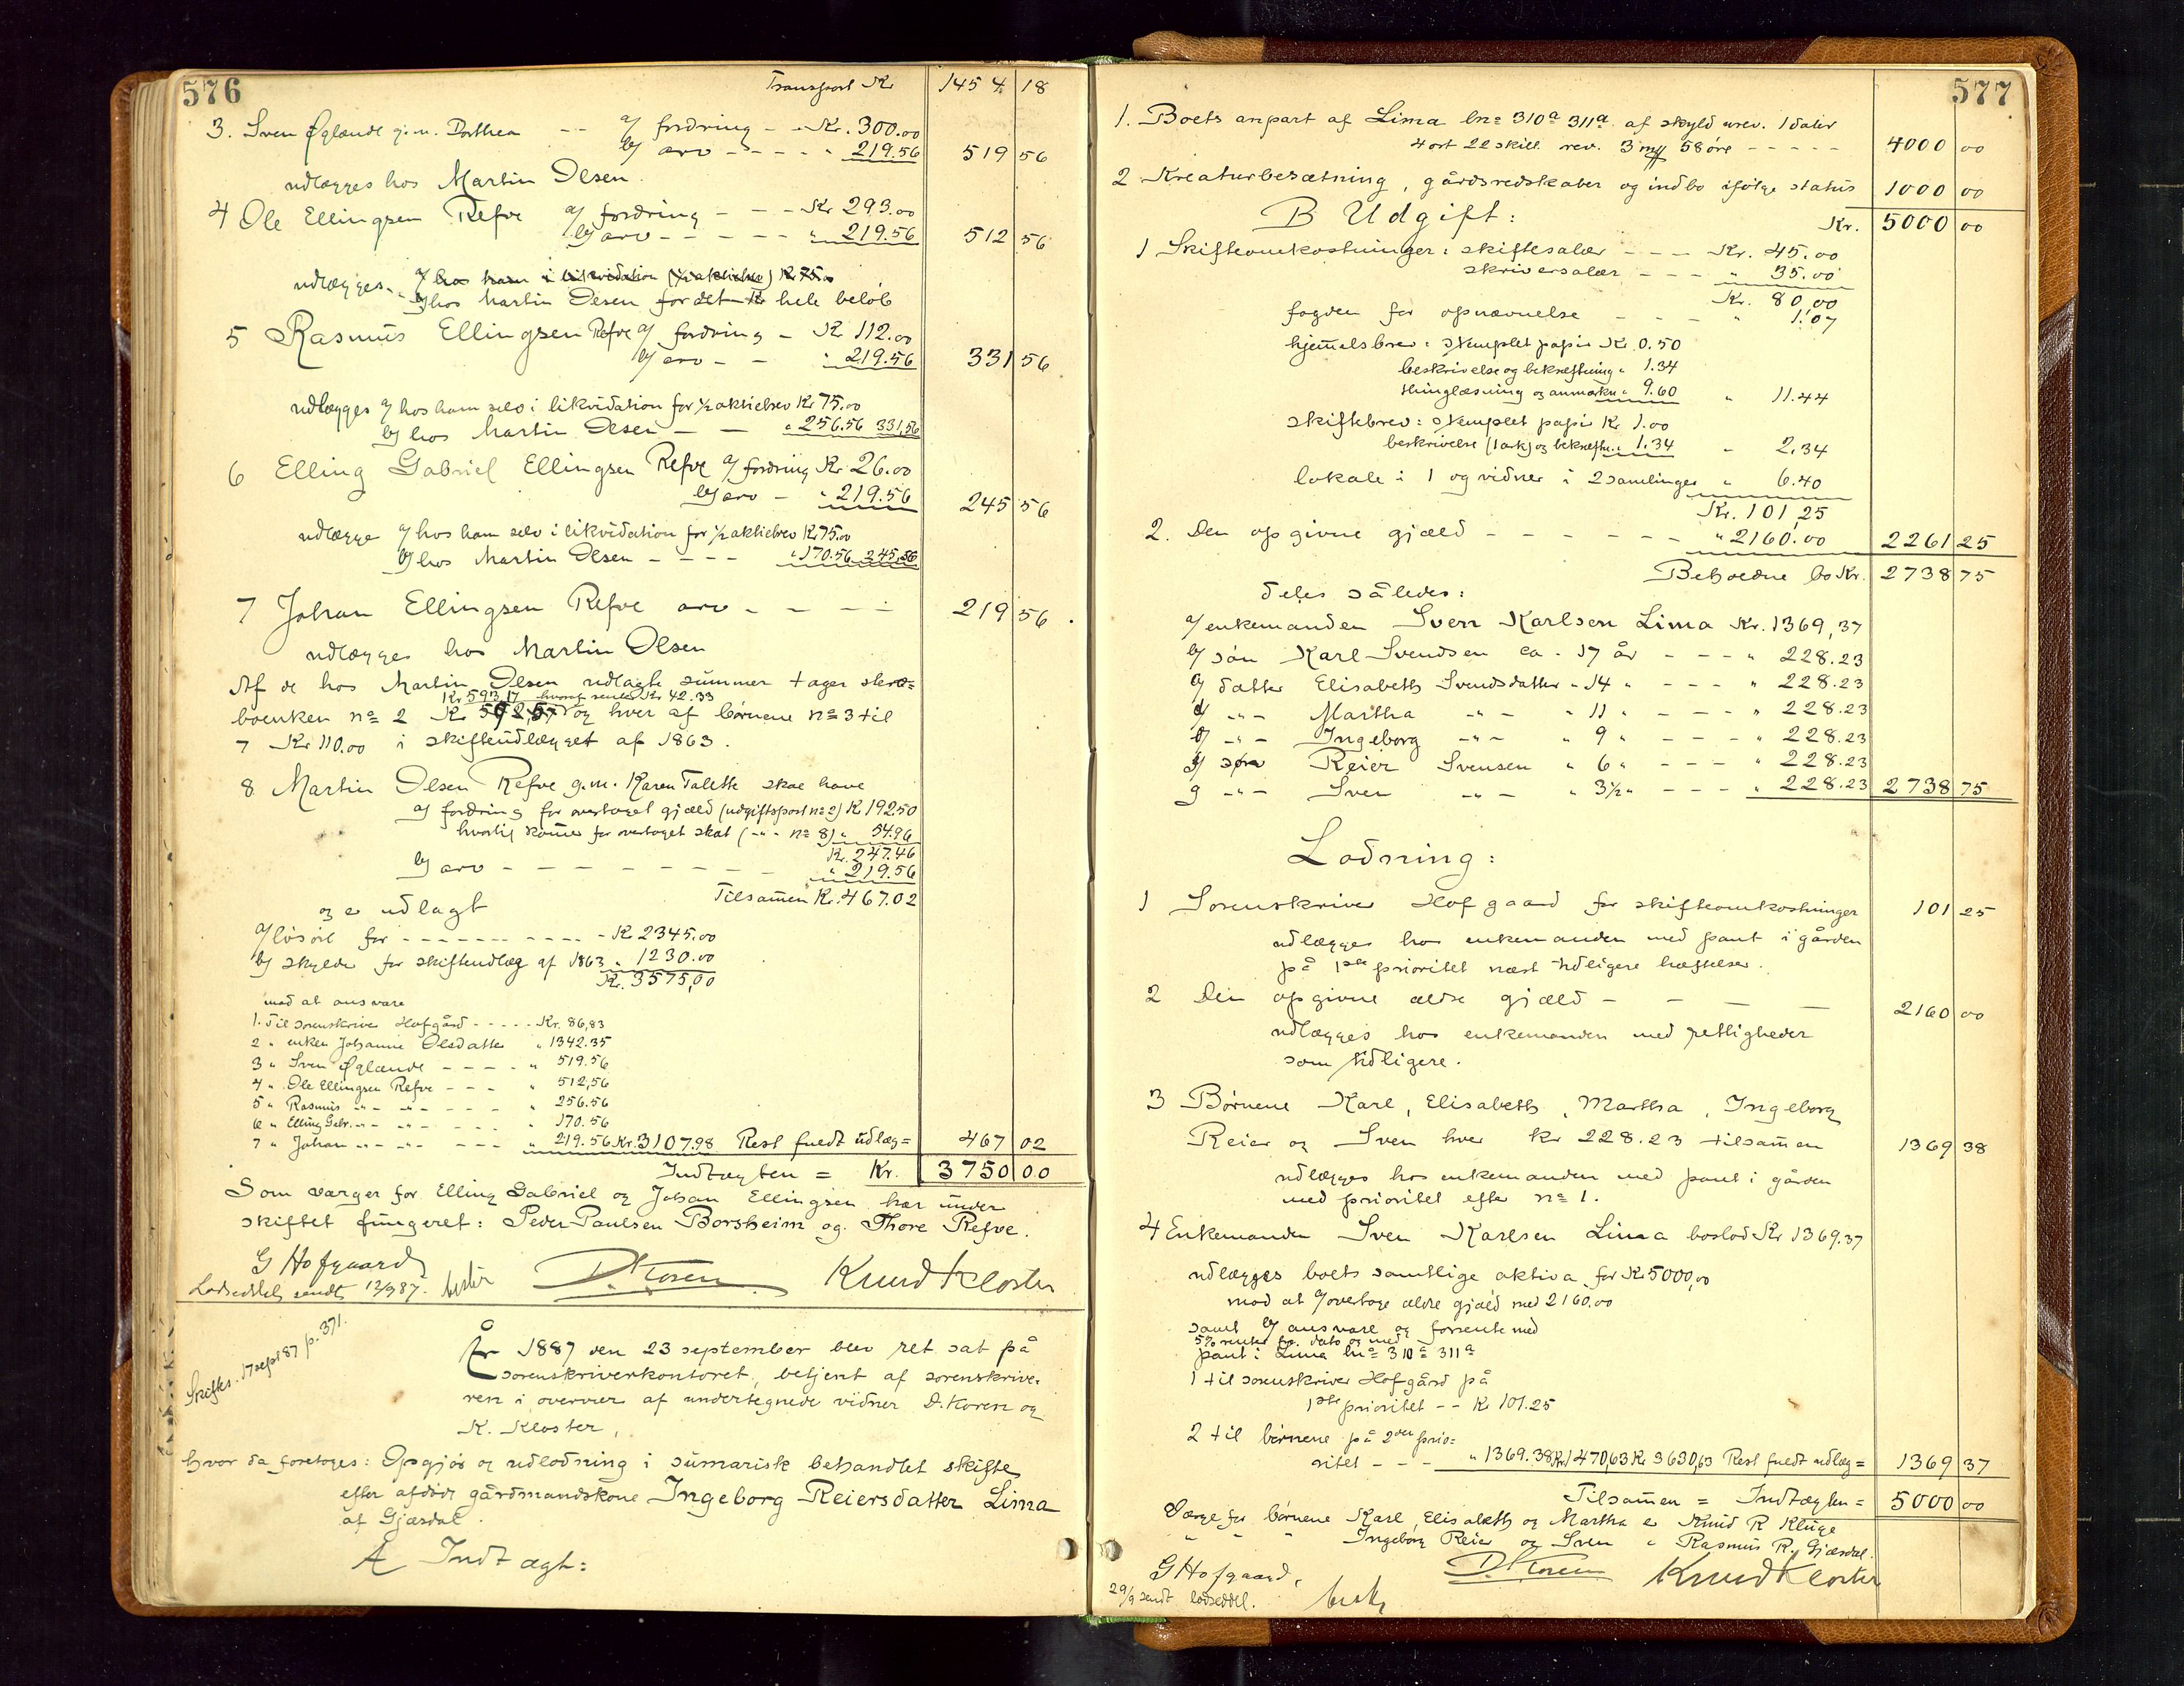 576
Transport Kr 1454 18
3. Sven Øglænde g. m. Dorthea -- a/ fordring - - Kr. 300.00
b/ arv - - - - " 219.56 519 56
udlægges hos Martin Olsen.
4 Ole Ellingsen Refve a/ fordring - - - Kr 293.00
b/ arv - - - - - " 219.56 512 56
udlægges - a/ hos ham i likvidation (½ aktiebrev) Kr 75.00
b/ hos Martin Olsen for det hele beløb
5 Rasmus Ellingsen Refve a/ fordring - Kr 112.00
b/ arv - - " 219.56 331 56
udlægges a/ hos ham selv i likvidation for ½ aktiebrev Kr 75.00
b/ hos Martin Olsen - - " 256.56 331,56
6 Elling Gabriel Ellingsen Refve a/ fordring Kr 26.00
b/ arv - " 219.56 245 56
udlægge a/ hos ham selv i likvidation for ½ aktiebrev Kr 75.00
b/ hos Martin Olsen - - - - " 170.56 245,56
7 Johan Ellingsen Refve arv - - - - 219 56
udlægges hos Martin Olsen
Af de hos Martin Olsen udlagte summer tager stervboenken
Kr 593,17 hvoraf renter Kr 42.33
boenken no 2 og hver af børnene no 3 til
7 Kr 110.00 i skifteudlægget af 1863.
8 Martin Olsen Refve g. m. Karen Talette skal have
a/ fordring for overtaget gjæld (udgiftspost no 2) Kr 192.50
hvortil kommer for overtaget skat (-"- no 8) " 54.96
Kr. 247.46
b/ arv - - - - - - - - " 219.56
Tilsamen Kr. 467.02
og er udlagt
a/ løsøre for - - - - - - - - - Kr 2345.00
b/ skylden for skifteudlæg af 1863 " 1230.00
Kr. 3575,00
mod at ansvare
1. Til sorenskriver Hofgård - - - - - Kr. 86,83
2 " enken Johanne Olsdatter " 1342.35
3 " Sven Øglænde - - - - " 519.56
4 " Ole Ellingsen Refve - - - " 512,56
5 " Rasmus -"- -"- - - - " 256.56
6 " Elling Gabr. -"- -"- - - - " 170.56
7 " Johan -"- -"- - - - " 219.56 Kr. 3107.98 Rest fuldt udlæg = 467 02
Indtægten = Kr. 3750 00
Som værger for Elling Gabriel og Johan Ellingsen har under
skiftet fungeret: Peder Paulsen Borsheim og Thore Refve.
G Hofgaard D. Koren Knud Kloster
Lodseddel sendt 12/9 87.
Skifter. 17 sept 87 p. 371.
År 1887 den 23 september blev ret sat på
sorenskriverkontoret, betjent af sorenskriveren
ren i overvær af undertegnede vidner D. Koren og
K. Kloster,
hvor da foretoges: Opgjør og udlodning i sumarisk behandlet skifte
efter afdøde gårdmandskone Ingeborg Reiersdatter Lima
af Gjæsdal.
A Indtægt:
577
1. Boets anpart af Lima lno 310a 311a af skyld urev. 1 daler
4 ort 22 skill. rev. 3 mk 58 øre - - - - - 4000 00
2 Kreaturbesætning, gårdsredskaber og indbo ifølge status 1000 00
B Udgift: Kr. 5000 00
1 Skifteomkostninger: skiftesalær - - - Kr. 45.00
skriversalær - - - " 35.00
Kr. 80,00
fogden for opnævnelse - - - " 1.07
hjemelsbrev: stemplet papir Kr. 0.50
beskrivelse og bekræftning " 1.34
thinglæsning og anmærkn " 9.60 " 11.44
skiftebrev: stemplet papir Kr 1.00
beskrivelse (1 ark) og bekræftn. " 1.34 " 2,34
lokale i 1 og vidner i 2 samlinger " 6.40
Kr. 101,25
2. Den opgivne gjæld - - - - - - " 2160.00 2261 25
Beholdne bo Kr. 2738 75
deles således:
a/ enkemanden Sven Karlsen Lima Kr. 1369,37
b/ søn Karl Svendsen ca. 17 år - - - " 228.23
c/ datter Elisabeth Svendsdatter " 14 " - - - " 228.23
d/ -"- Martha -"- " 11 " - - - " 228.23
e/ -"- Ingeborg -"- " 9 " - - - " 228.23
f/ søn Reier Svensen " 6 " - - - " 228.23
g -"- Sven -"- " 3½ " - - - " 228.23 2738 75
Lodning:
1 Sorenskriver Hofgaard for skifteomkostninger 101 25
udlægges hos enkemanden med pant i gården
på 1ste prioritet næst tidligere hæftelser.
2 Den opgivne ældre gjæld - - - - 2160 00
udlægges hos enkemanden med rettigheder
som tidligere.
3 Børnene Karl, Elisabeth, Martha, Ingeborg
Reier og Sven hver kr 228.23 tilsamen 1369 38
udlægges hos enkemanden med pant i gården
med prioritet efter no 1.
4 Enkemanden Sven Karlsen Lima boslod Kr 1369.37
udlægges boets samtlige aktiva for Kr 5000,00
mod at a/ overtage ældre gjæld med 2160.00
samt b/ ansvare og forrente med
5% renter fra dato og med
pant i Lima lno 310a 311a
1 til sorenskriver Hofgård på
1ste prioritet - - Kr 101.25
2 til børnene på 2den prioritet
ritet - - - " 1369.38 Kr 1470,63 Kr 3630,63 Rest fuldt udlæg = 1369 37
Tilsamen = Indtægten = 5000 00
Værge for børnene Karl, Elisabeth og Martha er Knud R Kluge
" " " Ingeborg Reier og Sven " Rasmus R. Gjæsdal.
G Hofgaard, D. Koren Knud Kloster
29/9 sendt lodseddel.